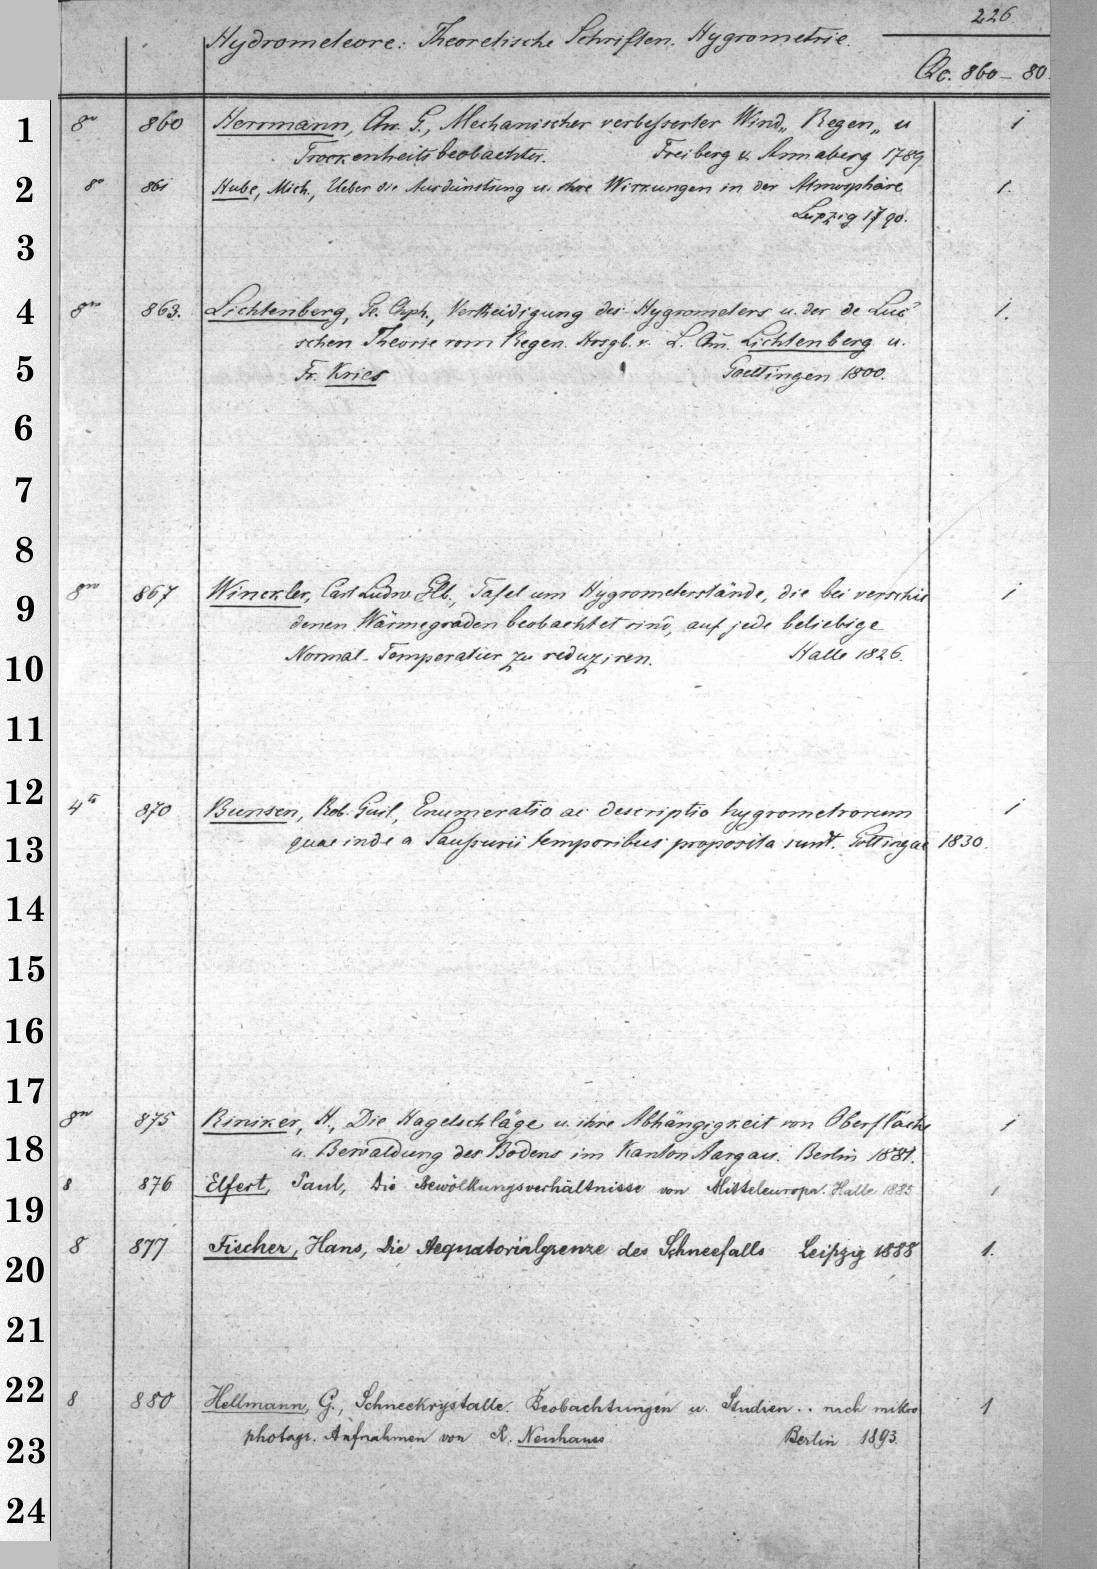 226
Hydrometeore: Theoretische Schriften. Hygrometrie.
Qc. 860-80.
1 8vo 860 Herrmann, Chr. G., Mechanischer verbesserter Wind„ Regen„ u 1
Trockenheitsbeobachter. Freiberg u. Annaberg 1789
2 8o 861 Hube, Mich., Ueber die Ausdünstung u. ihre Wirkungen in der Atmosphäre 1.
Leipzig 1790.
3
4 8vo 863. Lichtenberg, Ge. Chph., Vertheidigung des Hygrometers u. der de Luc' 1.
schen Theorie vom Regen. Hrsgb. v. L. Chr. Lichtenberg u.
5 Fr. Kries Goettingen 1800.
6
7
8
9 8vo 867 Winckler, Carl Ludw. Glb., Tafel um Hygrometerstände, die bei verschie 1
denen Wärmegraden beobachtet sind, auf jede beliebige
10 Normal-Temperatur zu reduziren. Halle 1826.
11
12 4to 870 Bunsen, Rob. Guil., Enumeratio ac descriptio hygrometrorum 1
13 quae inde a Saussurii temporibus proposita sunt. Gottingae 1830.
14
15
16
17
8vo 875 Riniker, H., Die Hagelschläge u. ihre Abhängigkeit von Oberfläche 1
18 u. Bewaldung des Bodens im Kanton Aargau. Berlin 1881.
8 876 Elfert, Paul, Die Bewölkungsverhältnisse von Mitteleuropa. Halle 1885 1
19
20 8 877 Fischer, Hans, Die Aequatorialgrenze des Schneefalls Leipzig 1888 1.
21
22 8 880 Hellmann, G., Schneekrystalle. Beobachtungen u. Studien .. nach mikro 1
23 photogr. Aufnahmen von R. Neuhauss Berlin 1893.
24